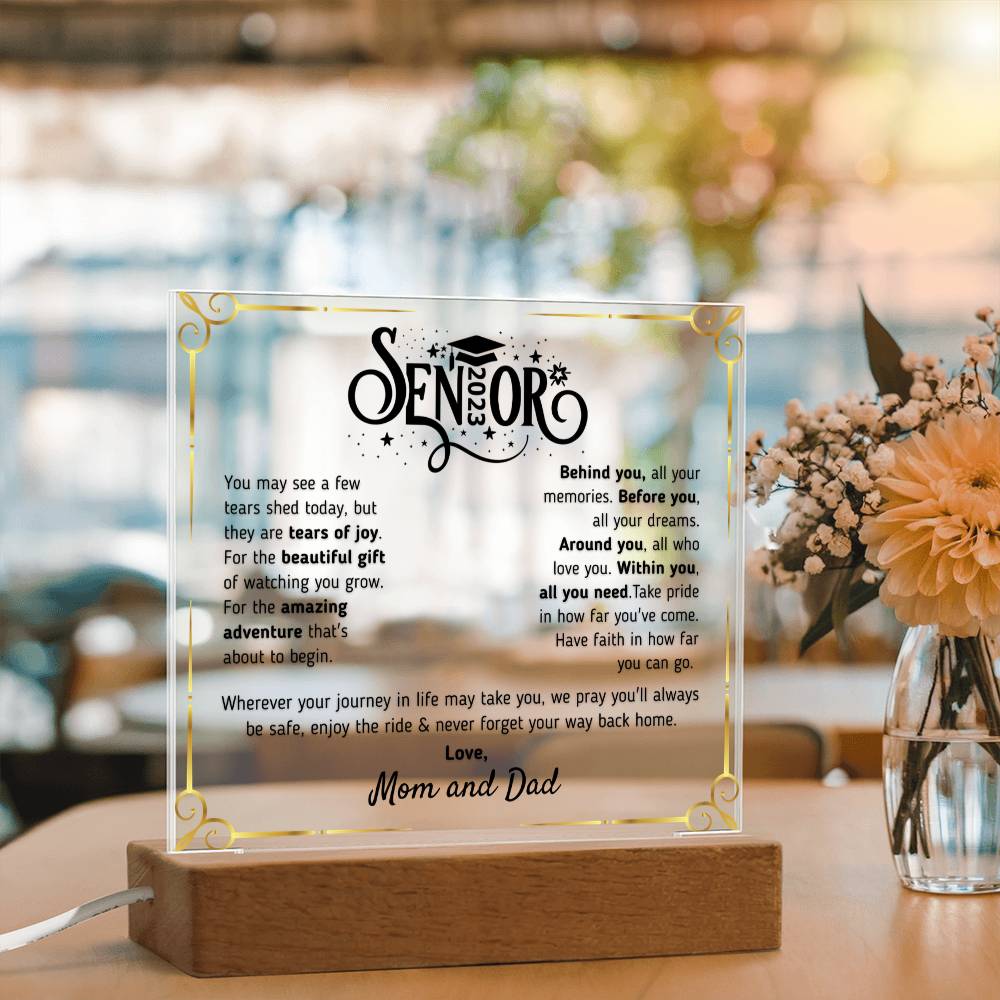 SENIOR
2023
You may see a few
tears shed today, but
they are tears of joy.
For the beautiful gift
of watching you grow.
For the amazing
adventure that's
about to begin.
Behind you, all your
memories. Before you,
all your dreams.
Around you, all who
love you. Within you,
all you need.Take pride
in how far you've come.
Have faith in how far
you can go.
Wherever your journey in life may take you, we pray you'll always
be safe, enjoy the ride & never forget your way back home.
Love,
Mom and Dad